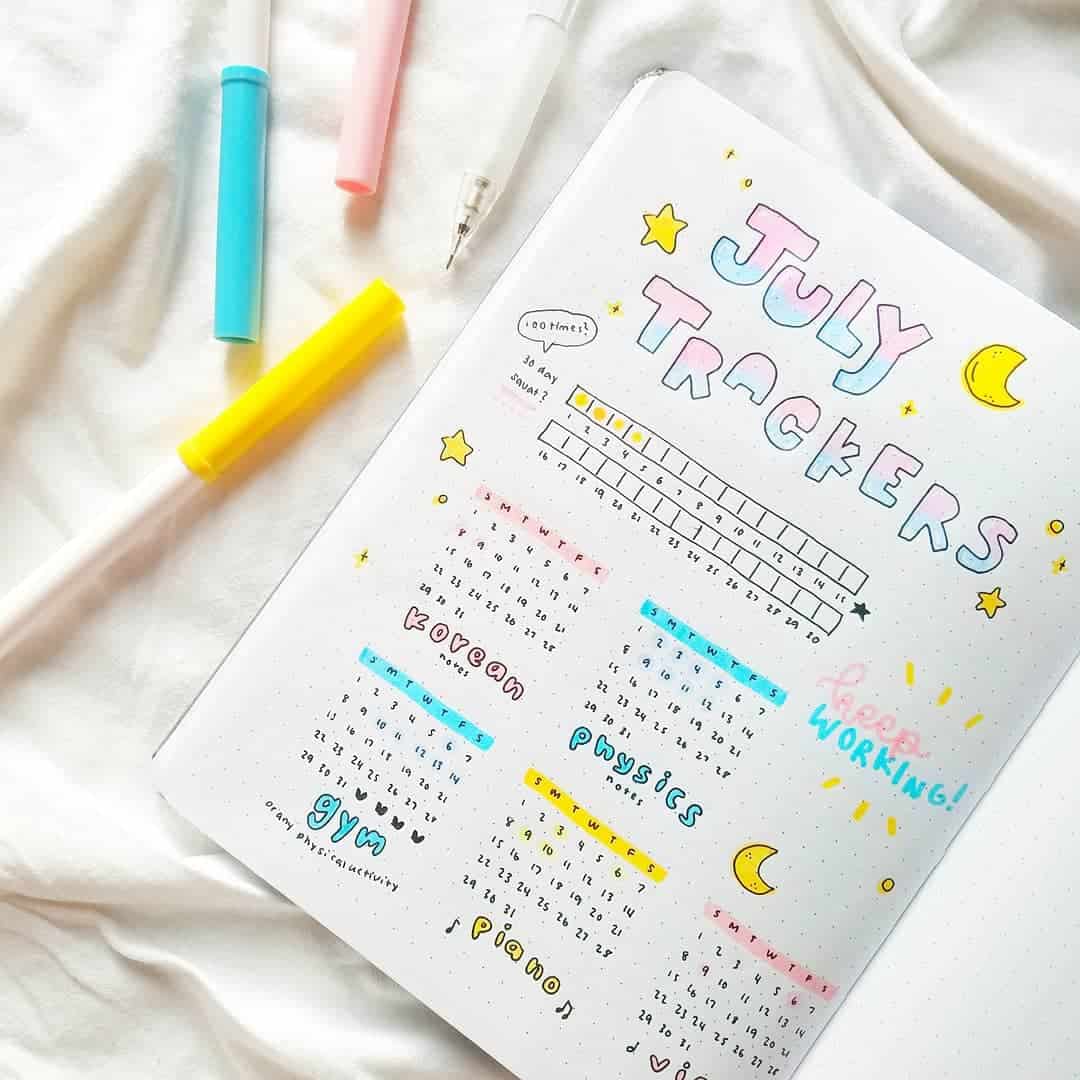 JULY
TRACKERS
100 times?
30 day
squat?
1 2 3 4 5 6 7 8 9 10 11 12 13 14 15
16 17 18 19 20 21 22 23 24 25 26 27 28 29 30
S M T W T F S
1 2 3 4 5 6 7
8 9 10 11 12 13 14
15 16 17 18 19 20 21
22 23 24 25 26 27 28
29 30 31
Korean
notes
S M T W T F S
1 2 3 4 5 6 7
8 9 10 11 12 13 14
15 16 17 18 19 20 21
22 23 24 25 26 27 28
29 30 31
physics
notes
keep
WORKING!
S M T W T F S
1 2 3 4 5 6 7
8 9 10 11 12 13 14
15 16 17 18 19 20 21
22 23 24 25 26 27 28
29 30 31
gym
or any physical activity
S M T W T F S
1 2 3 4 5 6 7
8 9 10 11 12 13 14
15 16 17 18 19 20 21
22 23 24 25 26 27 28
29 30 31
piano
S M T W T F S
1 2 3 4 5 6 7
8 9 10 11 12 13 14
15 16 17 18 19 20 21
22 23 24 25 26 27 28
29 30 31